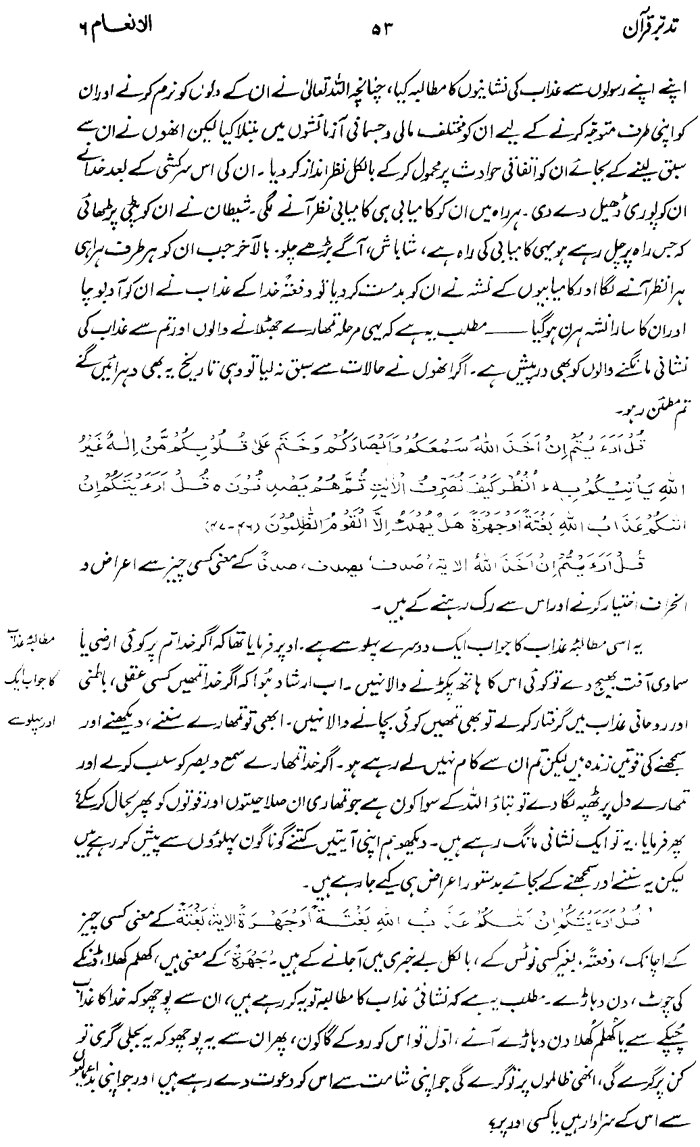 تدبر قرآن ۵۳ الانعام ۶
اپنے اپنے رسولوں سے عذاب کی نشانیوں کا مطالبہ کیا، چنانچہ اللہ تعالیٰ نے ان کے دلوں کو نرم کرنے اور ان
کو اپنی طرف متوجہ کرنے کے لیے ان کو مختلف مالی و جسمانی آزمائشوں میں مبتلا کیا لیکن انھوں نے ان سے
سبق لینے کے بجائے ان کو اتفاقی حوادث پر محمول کر کے بالکل نظر انداز کر دیا ۔ ان کی اس سرکشی کے بعد خدا نے
ان کو پوری ڈھیل دے دی ۔ ہر راہ میں ان کو کامیابی ہی کامیابی نظر آنے لگی ۔ شیطان نے ان کو پٹی پڑھائی
کہ جس راہ پر چل رہے ہو یہی کامیابی کی راہ ہے، شاباش، آگے بڑھے چلو ۔ بالآخر جب ان کو ہر طرف ہرا ہی
ہرا نظر آنے لگا اور کامیابیوں کے نشہ نے ان کو بدمست کر دیا تو دفعۃً خدا کے عذاب نے ان کو آ دبوچا
اور ان کا سارا نشہ ہرن ہو گیا ——— مطلب یہ ہے کہ یہی مرحلہ تمھارے جھٹلانے والوں اور تم سے عذاب کی
نشانی مانگنے والوں کو بھی درپیش ہے ۔ اگر انھوں نے حالات سے سبق نہ لیا تو وہی تاریخ یہ بھی دہرائیں گے
تم مطمئن رہو ۔
قُلْ اَرَءَيْتُمْ اِنْ اَخَذَ اللّٰهُ سَمْعَكُمْ وَاَبْصَارَكُمْ وَخَتَمَ عَلٰى قُلُوْبِكُمْ مَّنْ اِلٰهٌ غَيْرُ
اللّٰهِ يَاْتِيْكُمْ بِهٖ ۚ اُنْظُرْ كَيْفَ نُصَرِّفُ الْاٰيٰتِ ثُمَّ هُمْ يَصْدِفُوْنَ ۝ قُلْ اَرَءَيْتَكُمْ اِنْ
اَتٰكُمْ عَذَابُ اللّٰهِ بَغْتَةً اَوْ جَهْرَةً هَلْ يُهْلَكُ اِلَّا الْقَوْمُ الظّٰلِمُوْنَ (۴۶-۴۷)
قُلْ اَرَءَيْتُمْ اِنْ اَخَذَ اللّٰهُ الایۃ، صَدَفَ، یصدف، صدفًا کے معنی کسی چیز سے اعراض و
انحراف اختیار کرنے اور اس سے رک رہنے کے ہیں ۔
یہ اسی مطالبۂ عذاب کا جواب ایک دوسرے پہلو سے ہے ۔ اوپر فرمایا تھا کہ اگر خدا تم پر کوئی ارضی یا
مطالبۂ عذاب
سماوی آفت بھیج دے تو کوئی اس کا ہاتھ پکڑنے والا نہیں ۔ اب ارشاد ہوا کہ اگر خدا تمھیں کسی عقلی، باطنی
کا جواب ایک
اور روحانی عذاب میں گرفتار کر لے تو بھی تمھیں کوئی بچانے والا نہیں ۔ ابھی تو تمھارے سننے، دیکھنے اور
اور پہلو سے
سمجھنے کی قوتیں زندہ ہیں لیکن تم ان سے کام نہیں لے رہے ہو ۔ اگر خدا تمھارے سمع و بصر کو سلب کر لے اور
تمھارے دل پر ٹھپہ لگا دے تو بتاؤ اللہ کے سوا کون ہے جو تمھاری ان صلاحیتوں اور قوتوں کو پھر بحال کر سکے؟
پھر فرمایا، یہ تو ایک نشانی مانگ رہے ہیں ۔ دیکھو ہم اپنی آیتیں کتنے گوناگوں پہلوؤں سے پیش کر رہے ہیں
لیکن یہ سننے اور سمجھنے کے بجائے بدستور اعراض ہی کیے جا رہے ہیں ۔
'قُلْ اَرَءَيْتَكُمْ اِنْ اَتٰكُمْ عَذَابُ اللّٰهِ بَغْتَةً اَوْ جَهْرَةً الایۃ بَغْتَةً' کے معنی کسی چیز
کے اچانک، دفعتہ، بغیر کسی نوٹس کے، بالکل بے خبری میں آ جانے کے ہیں ۔ جَهْرَةً کے معنی ہیں، کھلم کھلا، ڈنکے
کی چوٹ، دن دہاڑے ۔ مطلب یہ ہے کہ نشانئ عذاب کا مطالبہ تو یہ کر رہے ہیں، ان سے پوچھو کہ خدا کا عذاب
چپکے سے یا کھلم کھلا دن دہاڑے آئے، اوّل تو اس کو روکے گا کون، پھر ان سے یہ پوچھو کہ یہ بجلی گری تو
کن پر گرے گی، انھی ظالموں پر تو گرے گی جو اپنی شامت سے اس کو دعوت دے رہے ہیں اور جو اپنی بداعمالیوں
سے اس کے سزاوار ہیں یا کسی اور پر؟